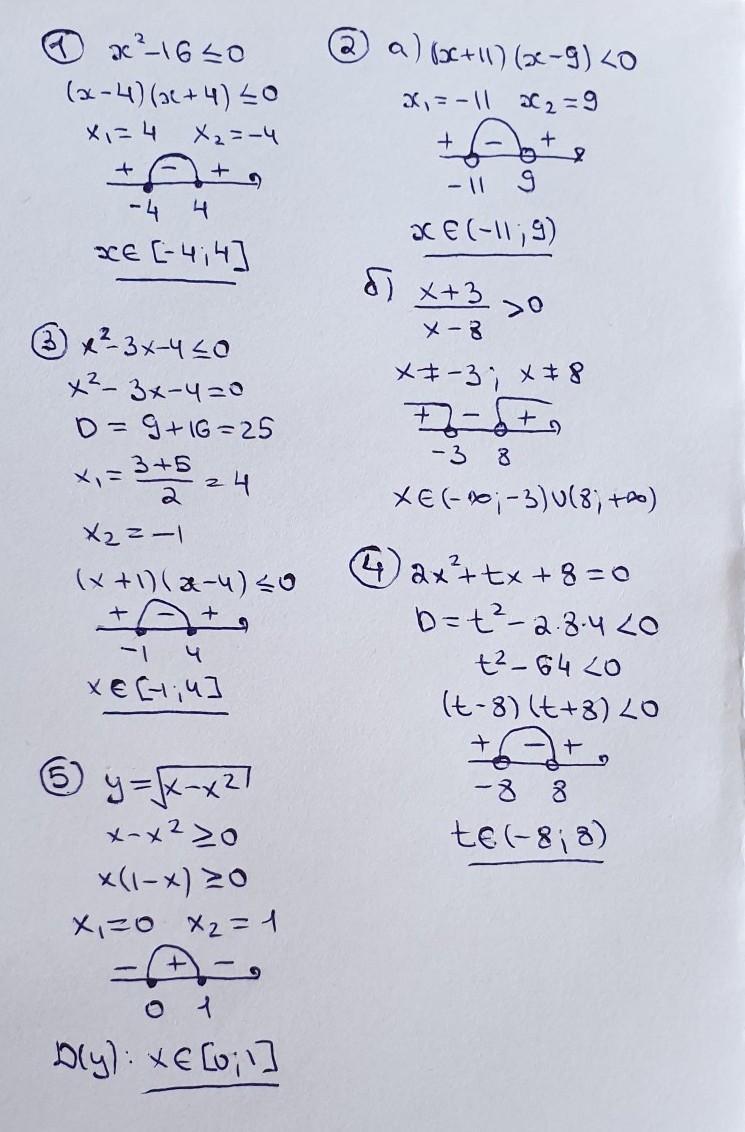 ① x²-16≤0
(x-4)(x+4)≤0
x₁=4 x₂=-4
+ - +
-4 4
x∈[-4;4]
② а) (x+11)(x-9)<0
x₁=-11 x₂=9
+ - +
-11 9
x∈(-11;9)
б) (x+3)/(x-8) >0
x≠-3; x≠8
+ - +
-3 8
x∈(-∞;-3)∪(8;+∞)
③ x²-3x-4≤0
x²-3x-4=0
D=9+16=25
x₁=(3+5)/2=4
x₂=-1
(x+1)(x-4)≤0
+ - +
-1 4
x∈[-1;4]
④ 2x²+tx+8=0
D=t²-2·8·4<0
t²-64<0
(t-8)(t+8)<0
+ - +
-8 8
t∈(-8;8)
⑤ y=√(x-x²)
x-x²≥0
x(1-x)≥0
x₁=0 x₂=1
- + -
0 1
D(y): x∈[0;1]